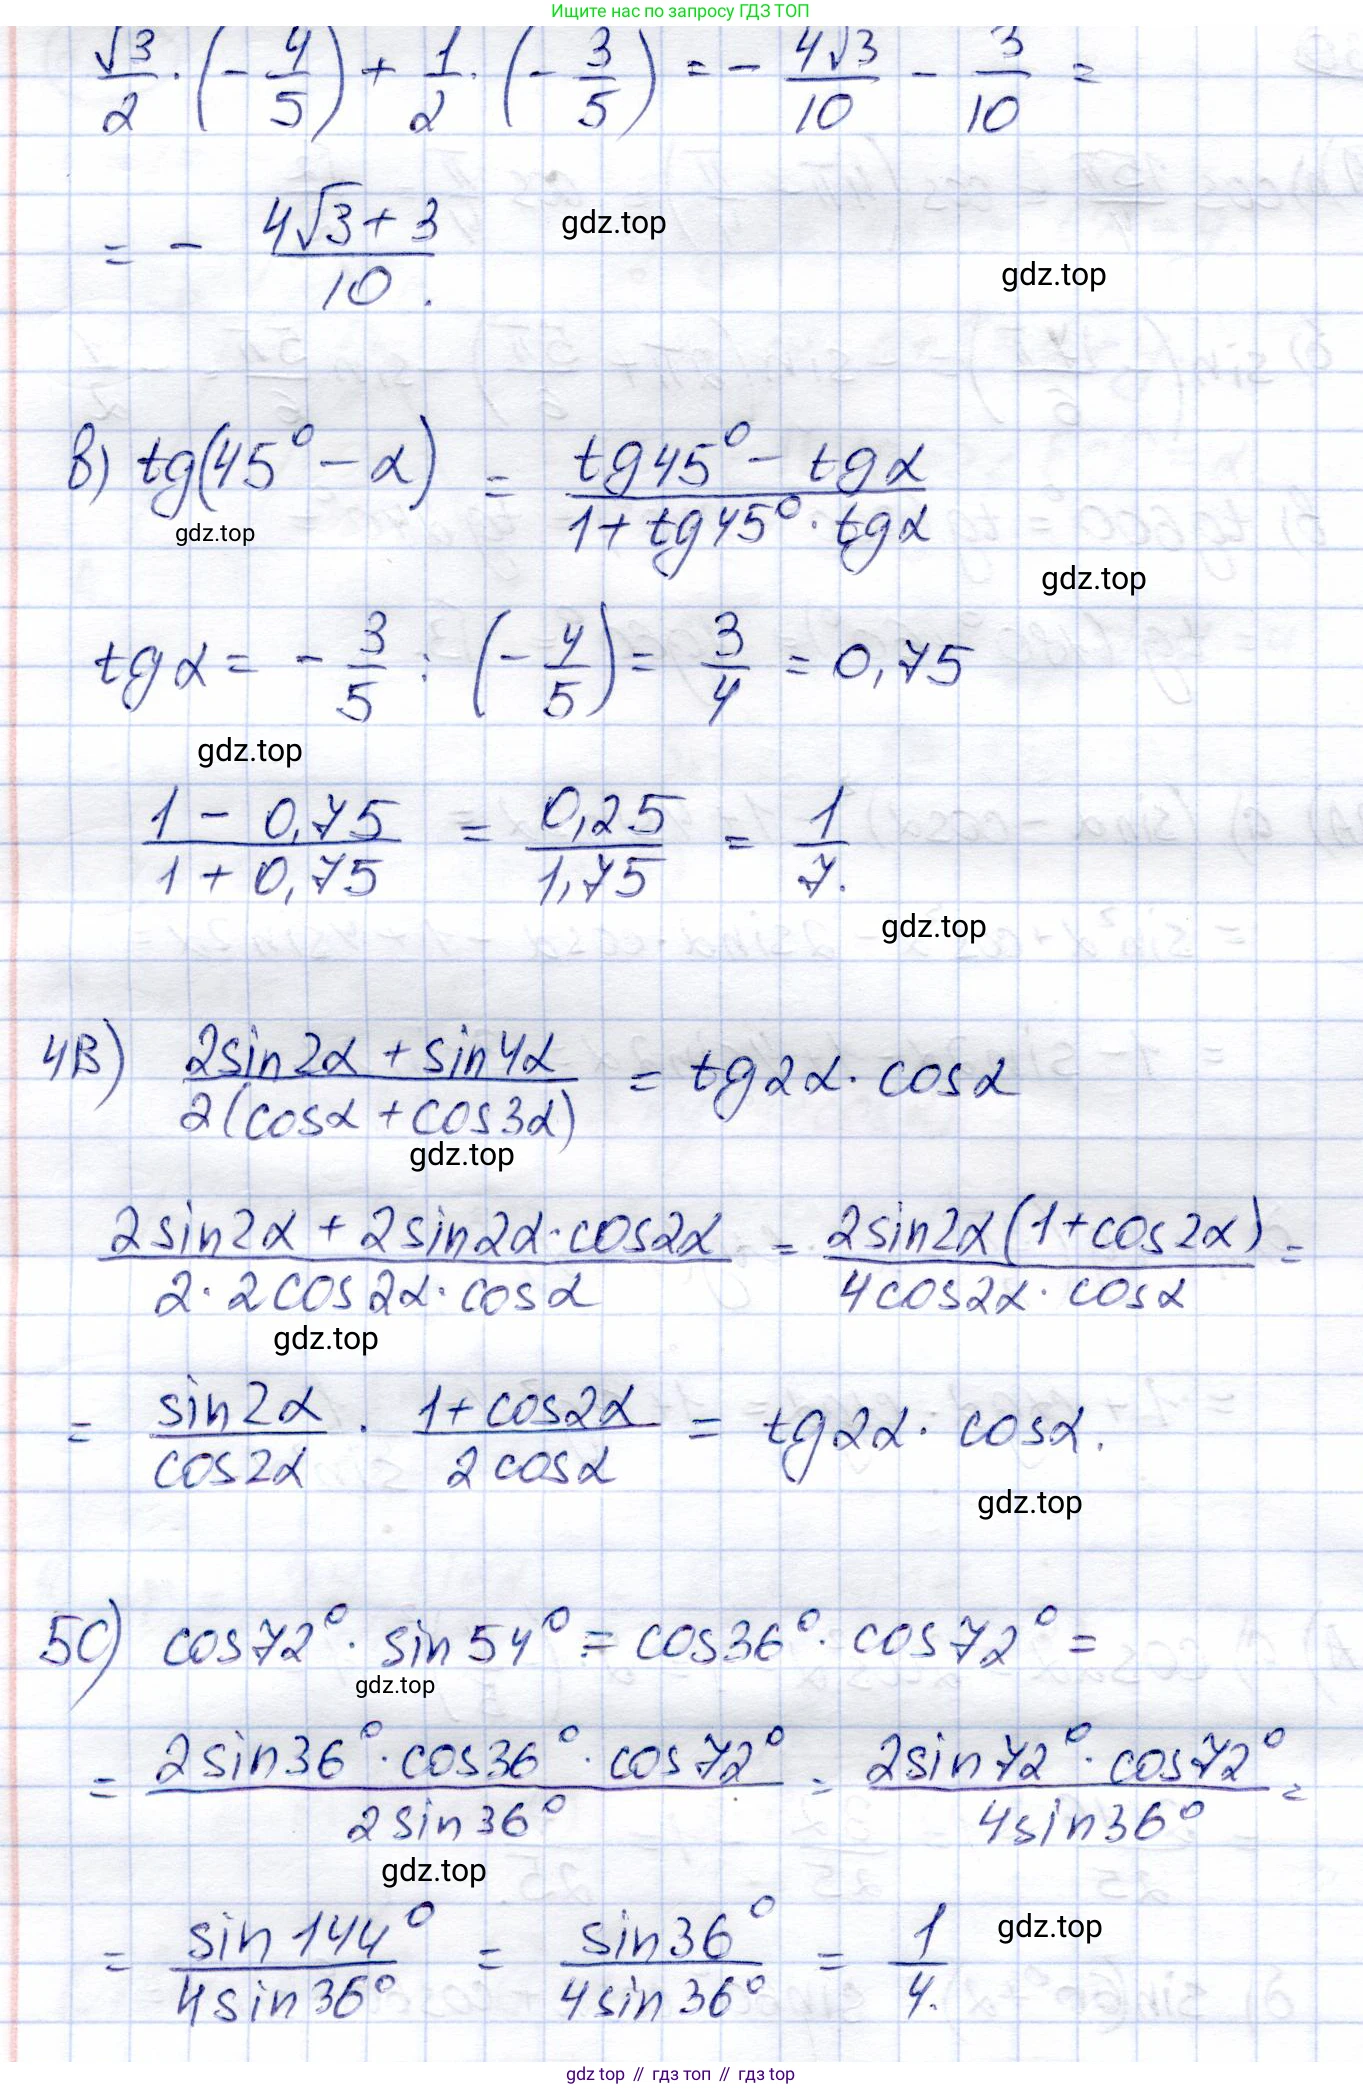 Ищите нас по запросу ГДЗ ТОП
√3/2 · (− 4/5) + 1/2 · (− 3/5) = − 4√3/10 − 3/10 =
= − (4√3 + 3)/10 .
gdz.top
gdz.top
в) tg(45° − α) = (tg45° − tgα)/(1 + tg45° · tgα)
gdz.top
gdz.top
tgα = − 3/5 : (− 4/5) = 3/4 = 0,75
gdz.top
(1 − 0,75)/(1 + 0,75) = 0,25/1,75 = 1/7.
gdz.top
4В) (2sin2α + sin4α)/(2(cosα + cos3α)) = tg2α · cosα
gdz.top
(2sin2α + 2sin2α · cos2α)/(2 · 2cos2α · cosα) = 2sin2α(1 + cos2α)/(4cos2α · cosα) =
gdz.top
= sin2α/cos2α · (1 + cos2α)/(2cosα) = tg2α · cosα.
gdz.top
5С) cos72° · sin54° = cos36° · cos72° =
gdz.top
= (2sin36° · cos36° · cos72°)/(2sin36°) = (2sin72° · cos72°)/(4sin36°) =
gdz.top
= sin144°/(4sin36°) = sin36°/(4sin36°) = 1/4.
gdz.top
gdz top // гдз топ // гдз top